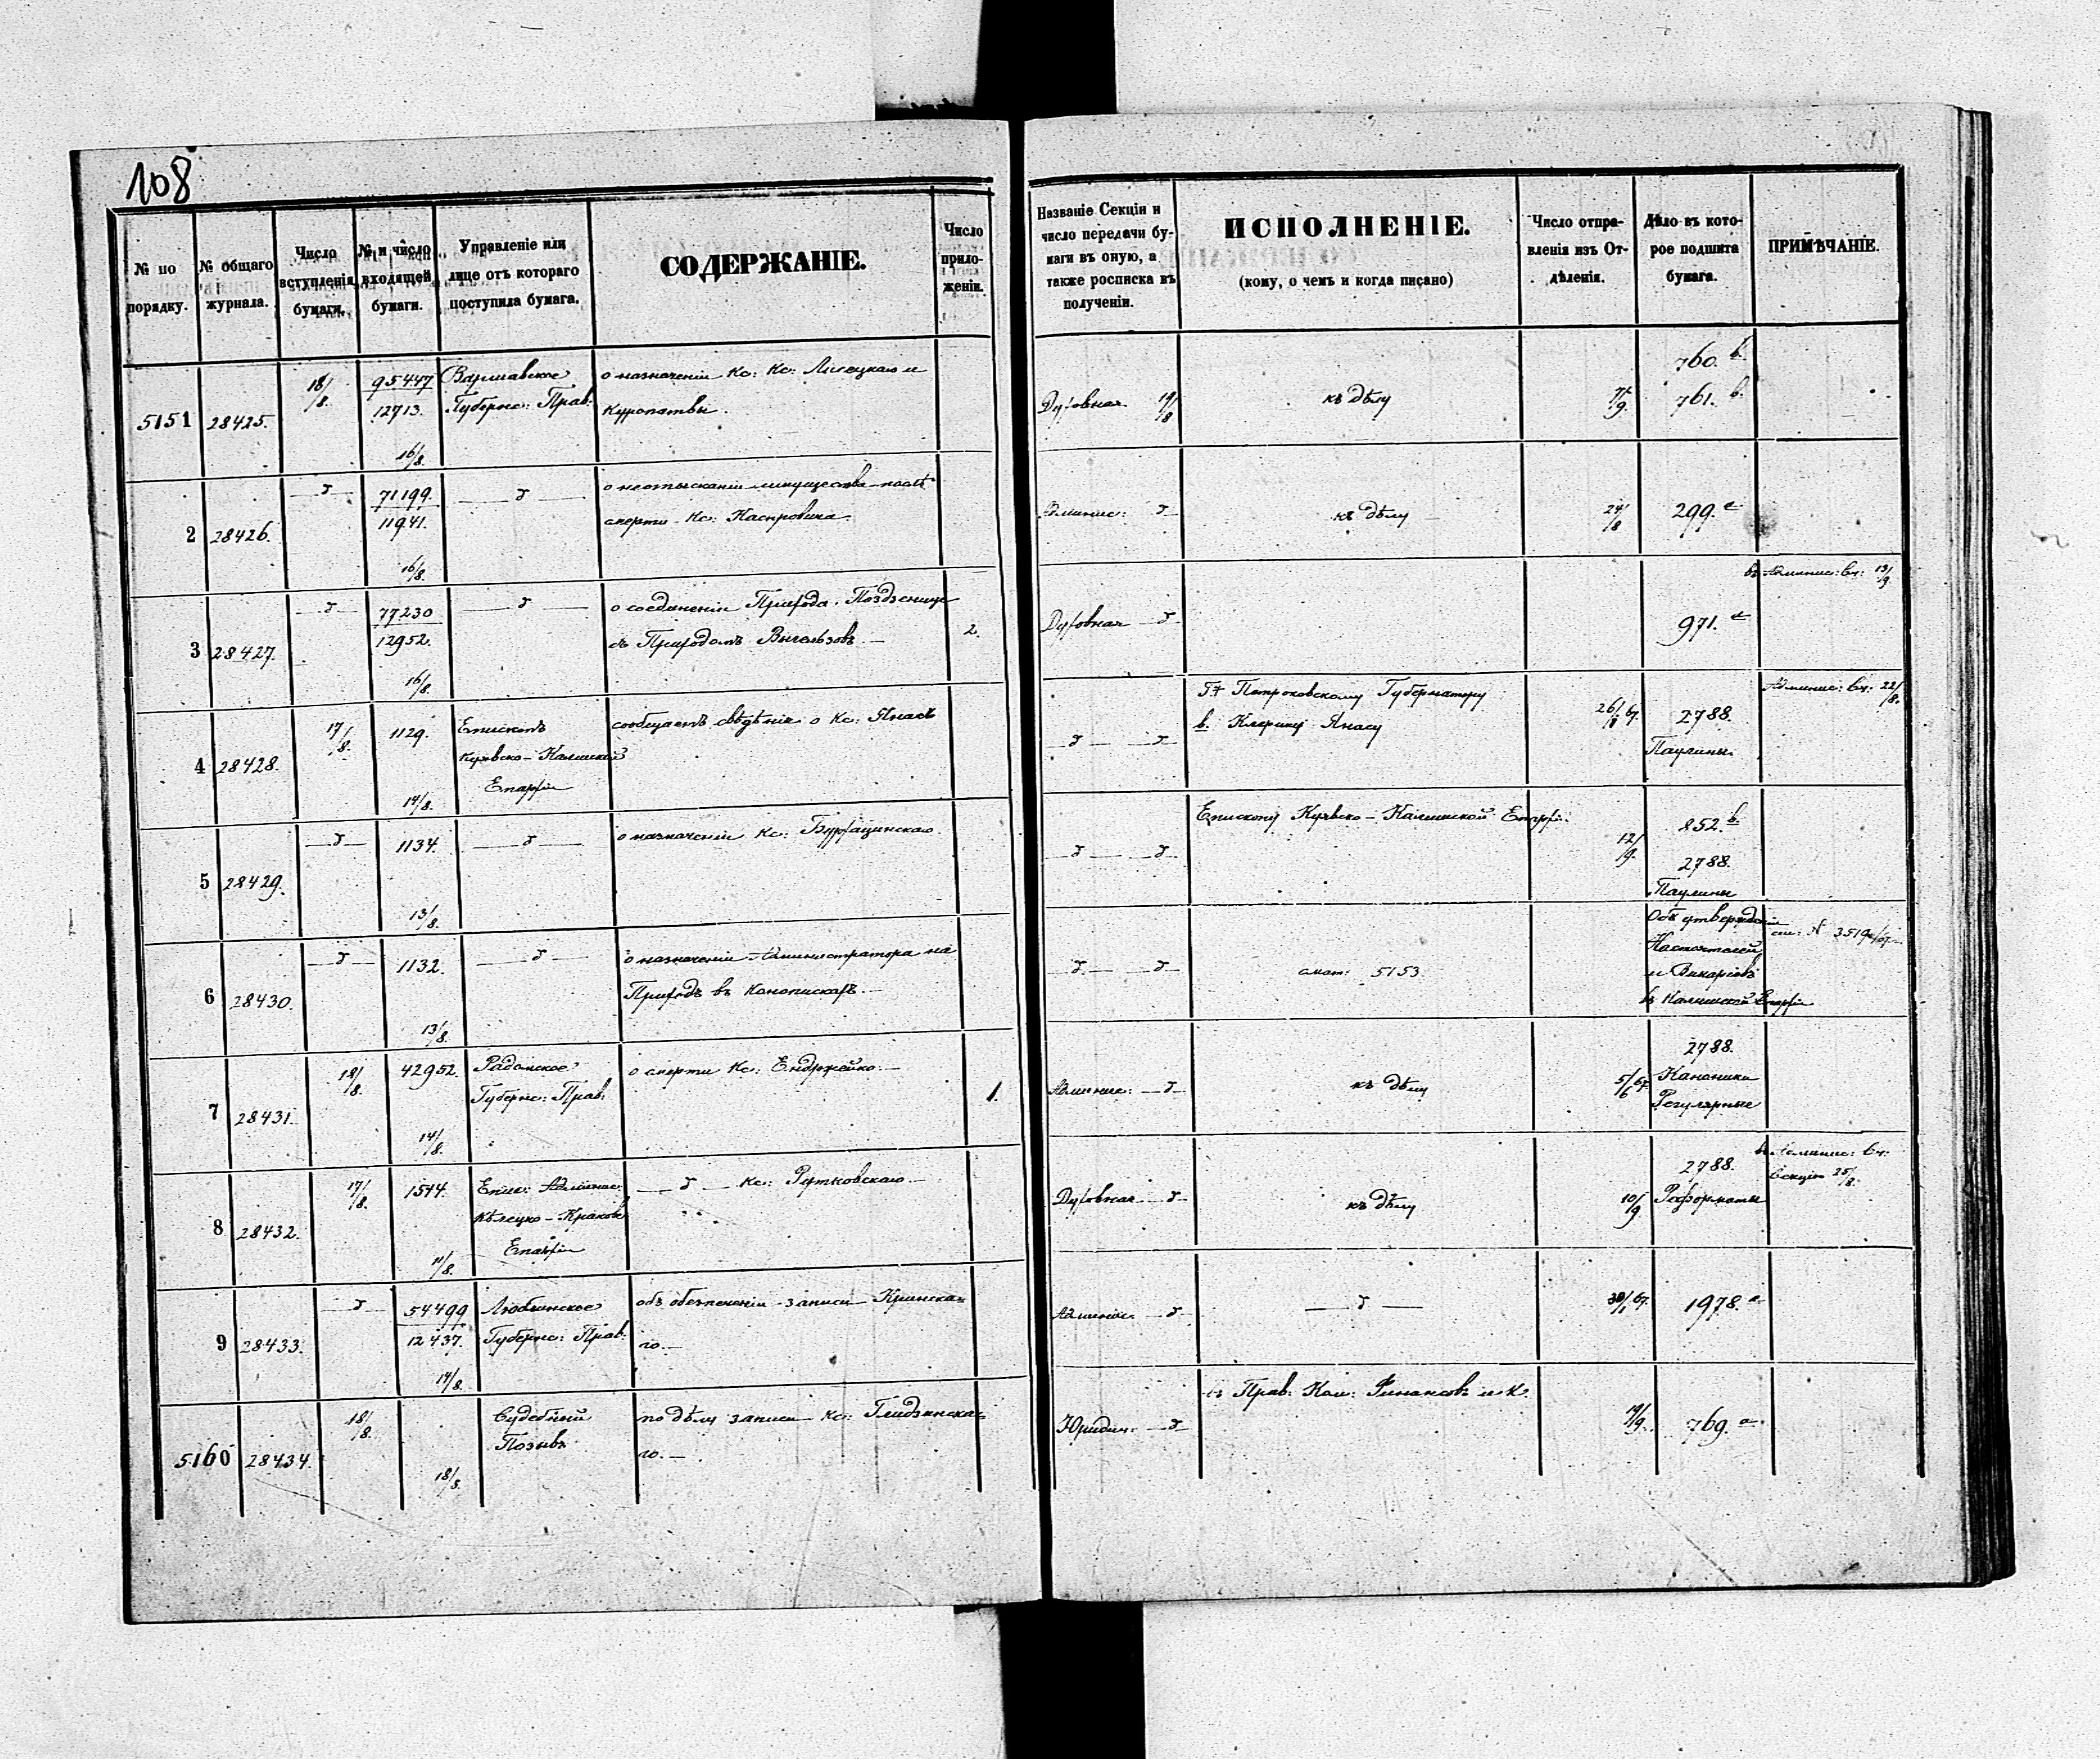 108
№ по порядку.
№ общаго журнала.
Число вступленія бумаги.
№ и число входящей бумаги.
Управленіе или лице отъ котораго поступила бумага.
СОДЕРЖАНІЕ.
Число приложеніи.
Названіе Секціи и число передачи бумаги въ оную, а также росписка въ полученіи.
ИСПОЛНЕНІЕ.
(кому, о чемъ и когда писано)
Число отправленія изъ Отдѣленія.
Дѣло въ которое подшита бумага.
ПРИМѢЧАНІЕ.
5151 28425. 18/8. 95447 Варшавское о назначеніи Кс: Кс: Лисецкаго и
12713. Губернс: Прав: Куропатвы.
16/8.
Духовная 19/8 къ дѣлу 7/9. 760. b.
761. b.
2 28426. —д— 71199. —д— о неотысканіи имущества послѣ
11941. смерти Кс: Каспровича.
16/8.
Админис: д— къ дѣлу 24/8 299. a
3 28427. —д— 77230 —д— о соединеніи Прихода
12952. съ Приходомъ 2.
16/8.
Духовная —д— 971. a въ Админис: Сч: 13/9
4 28428. 17/8. 1129. Епископъ сообщаетъ свѣдѣнія о Кс: Янасѣ
Куявско-Калишской
14/8. Епархіи
—д— —д— Г+ Петроковскому Губернатору 26/8 67. 2788. Админис: Сч: 22/8.
в. Клерику Янасу Паулины
5 28429. —д— 1134. —д— о назначеніи Кс:
13/8.
—д— —д— Епископу Куявско-Калишской Епархіи. 12/9. 852. b
2788.
Паулины
6 28430. —д— 1132. —д— о назначеніи Администратора на
Приходъ въ
13/8.
—д— —д— смот: 5153. Объ утвержденіи
Настоятелей
и Викаріевъ
въ Калишской Епархіи
7 28431. 18/8. 42952. Радомское о смерти Кс: Ендржейко.— 1.
Губернс: Прав:
14/8.
Админис: —д— къ дѣлу 5/6 67. 2788.
Каноники
Регулярные
8 28432. 17/8. 1514. Епис: Админис: —д— Кс: Рутковскаго —
Кѣлецко-Краков:
11/8. Епархіи
Духовная —д— къ дѣлу 10/9 2788. въ Админис: Сч:
Реформаты Секцію 25/8.
9 28433. —д— 54499 Люблинское объ обезпеченіи записи Кринска-
12437. Губернс: Прав: го.—
14/8.
Админис: —д— —д— 30/1 67. 1978. a
5160 28434. 18/8. Судебный по дѣлу записи Кс: Глидзинска-
Позывъ го.—
18/8.
Юридич: —д— въ Прав: Ком: Финансовъ и К. 19/9. 769. a.